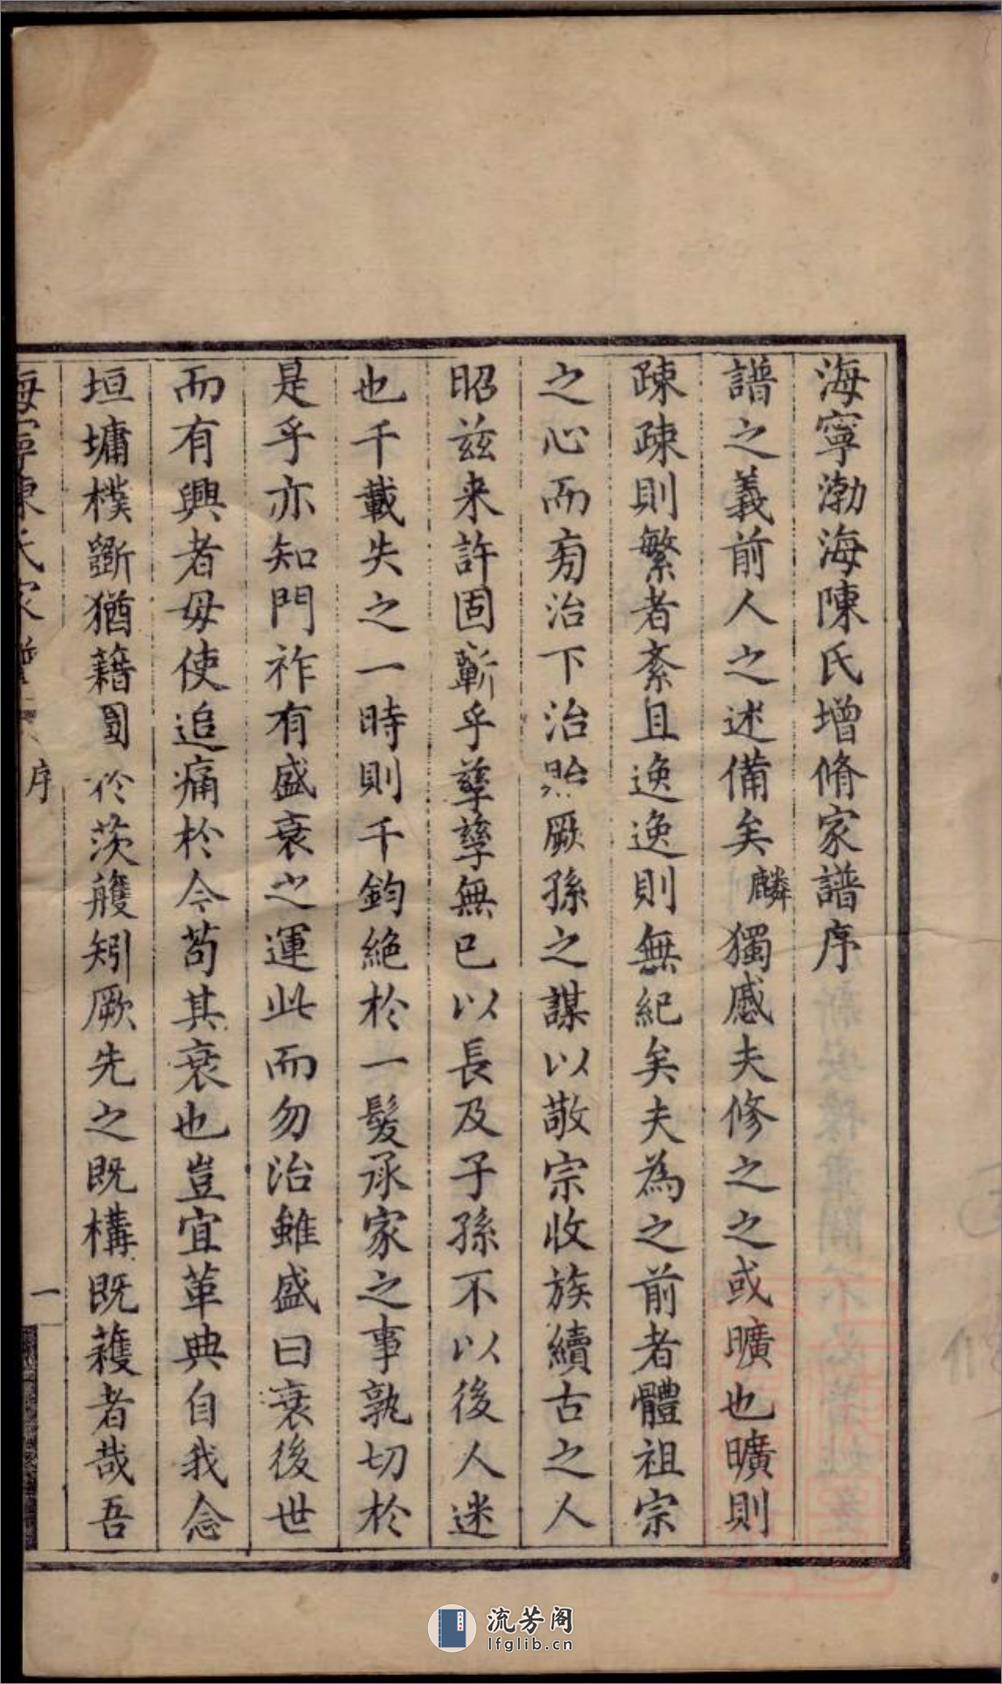 海寧渤海陳氏增脩家譜序
譜之義前人之述備矣麟獨慼夫修之之或曠也曠則
踈踈則繁者紊且逸逸則無紀矣夫為之前者體祖宗
之心而旁治下治貽厥孫之謀以敬宗收族續古之人
昭茲来許固蘄乎孳孳無已以長及子孫不以後人迷
也千載失之一時則千鈞絕於一髮承家之事孰切於
是乎亦知門祚有盛衰之運此而勿治雖盛曰衰後世
而有興者毋使追痛於今苟其衰也豈宜革典自我念
垣墉樸斲猶藉圖於茨雘矧厥先之既構既穫者哉吾
海寧陳氏家譜
序
一
流芳阁
lfglib.cn